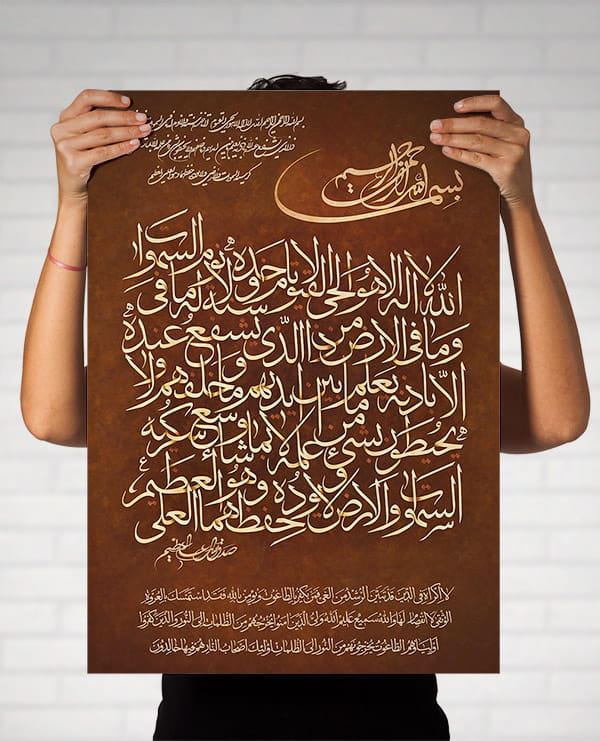 بسم الله الرحمن الرحیم
الله لا اله الا هو الحی القیوم لا تاخذه سنة ولا نوم له ما فی السموات
وما فی الارض من ذا الذی یشفع عنده
الا باذنه یعلم ما بین ایدیهم وما خلفهم ولا
یحیطون بشیء من علمه الا بما شاء وسع کرسیه
السموات والارض ولا یؤده حفظهما وهو العلی العظیم
صدق الله العلی العظیم
لا اکراه فی الدین قد تبین الرشد من الغی فمن یکفر بالطاغوت ویؤمن بالله فقد استمسک بالعروة
الوثقی لا انفصام لها والله سمیع علیم الله ولی الذین امنوا یخرجهم من الظلمات الی النور والذین کفروا
اولیاؤهم الطاغوت یخرجونهم من النور الی الظلمات اولئک اصحاب النار هم فیها خالدون